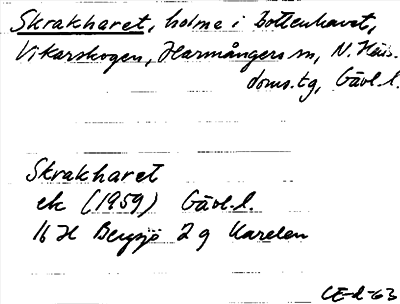 Skrakharet, holme i Bottenhavet,
Vikarskogen, Harmångers sn, N. Häls.
doms.tg, Gävl. l.
Skrakharet
ek (1959) Gävl. l.
16 H Bergsjö 2 g Karelen
CE-d-63